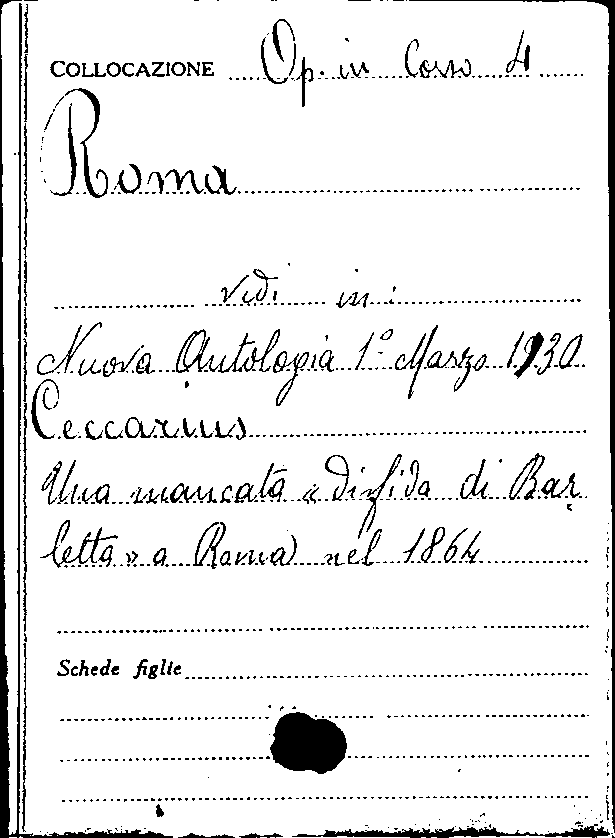 COLLOCAZIONE Op. in Corso 4
Roma
vedi in:
Nuova Antologia 1º Marzo 1930
Ceccarius
Una mancata « disfida di Bar
letta » a Roma nel 1864
Schede figlie